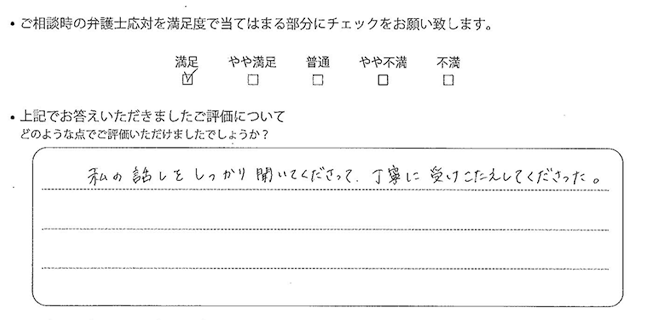 • ご相談時の弁護士応対を満足度で当てはまる部分にチェックをお願い致します。
満足 やや満足 普通 やや不満 不満
☑ ☐ ☐ ☐ ☐
• 上記でお答えいただきましたご評価について
どのような点でご評価いただけましたでしょうか？
私の話しをしっかり聞いてくださって、丁寧に受けこたえしてくださった。